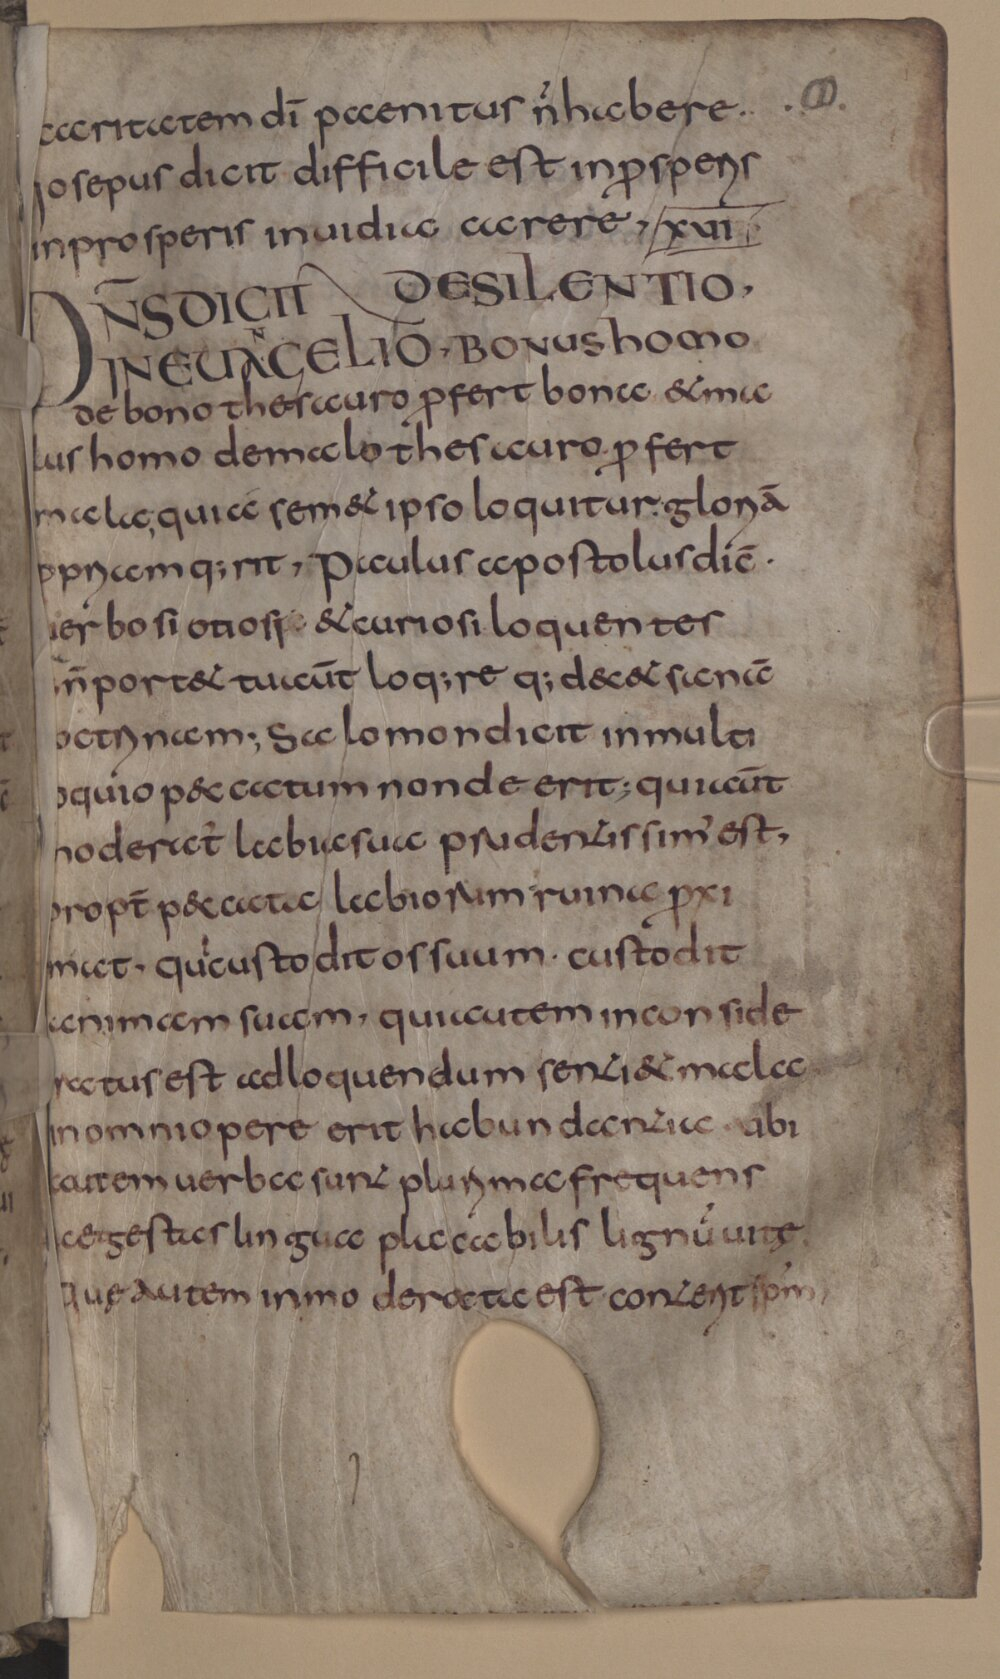 caritatem dī paenitus n̄ habere..
Iosepus dicit difficile est in ꝓsperis
in prosperis inuidia carere, xvi
DN̄S DICIT DE SILENTIO,
IN EUANGELIO, BONUS homo
de bono thesauro ꝓfert bona & ma
lus homo de malo thesauro ꝓfert
mala, qui a sem& ipso loquitur gloriā
ppriam q;rit, Paulus apostolus dic̄.
uerbosi otiosi & curiosi loquentes
n̄ port& tuaūt loq;re q; dec& sanā
octrinam; Salomon dicit in multi
oquio peccatum non deerit; qui aūt
moderat̄ labia sua prudentissim' est,
propt̄ peccata labiorum ruina ꝓxi
mat, qui custodit os suum. custodit
animam suam, qui autem inconside
ratus est ad loquendum senti& mala
in omni opere erit habundantia ubi
autem uerba sunt plurima frequens
egestas lingua placabilis lignū uitę.
quę autem inmoderata est conterit sp̄m,